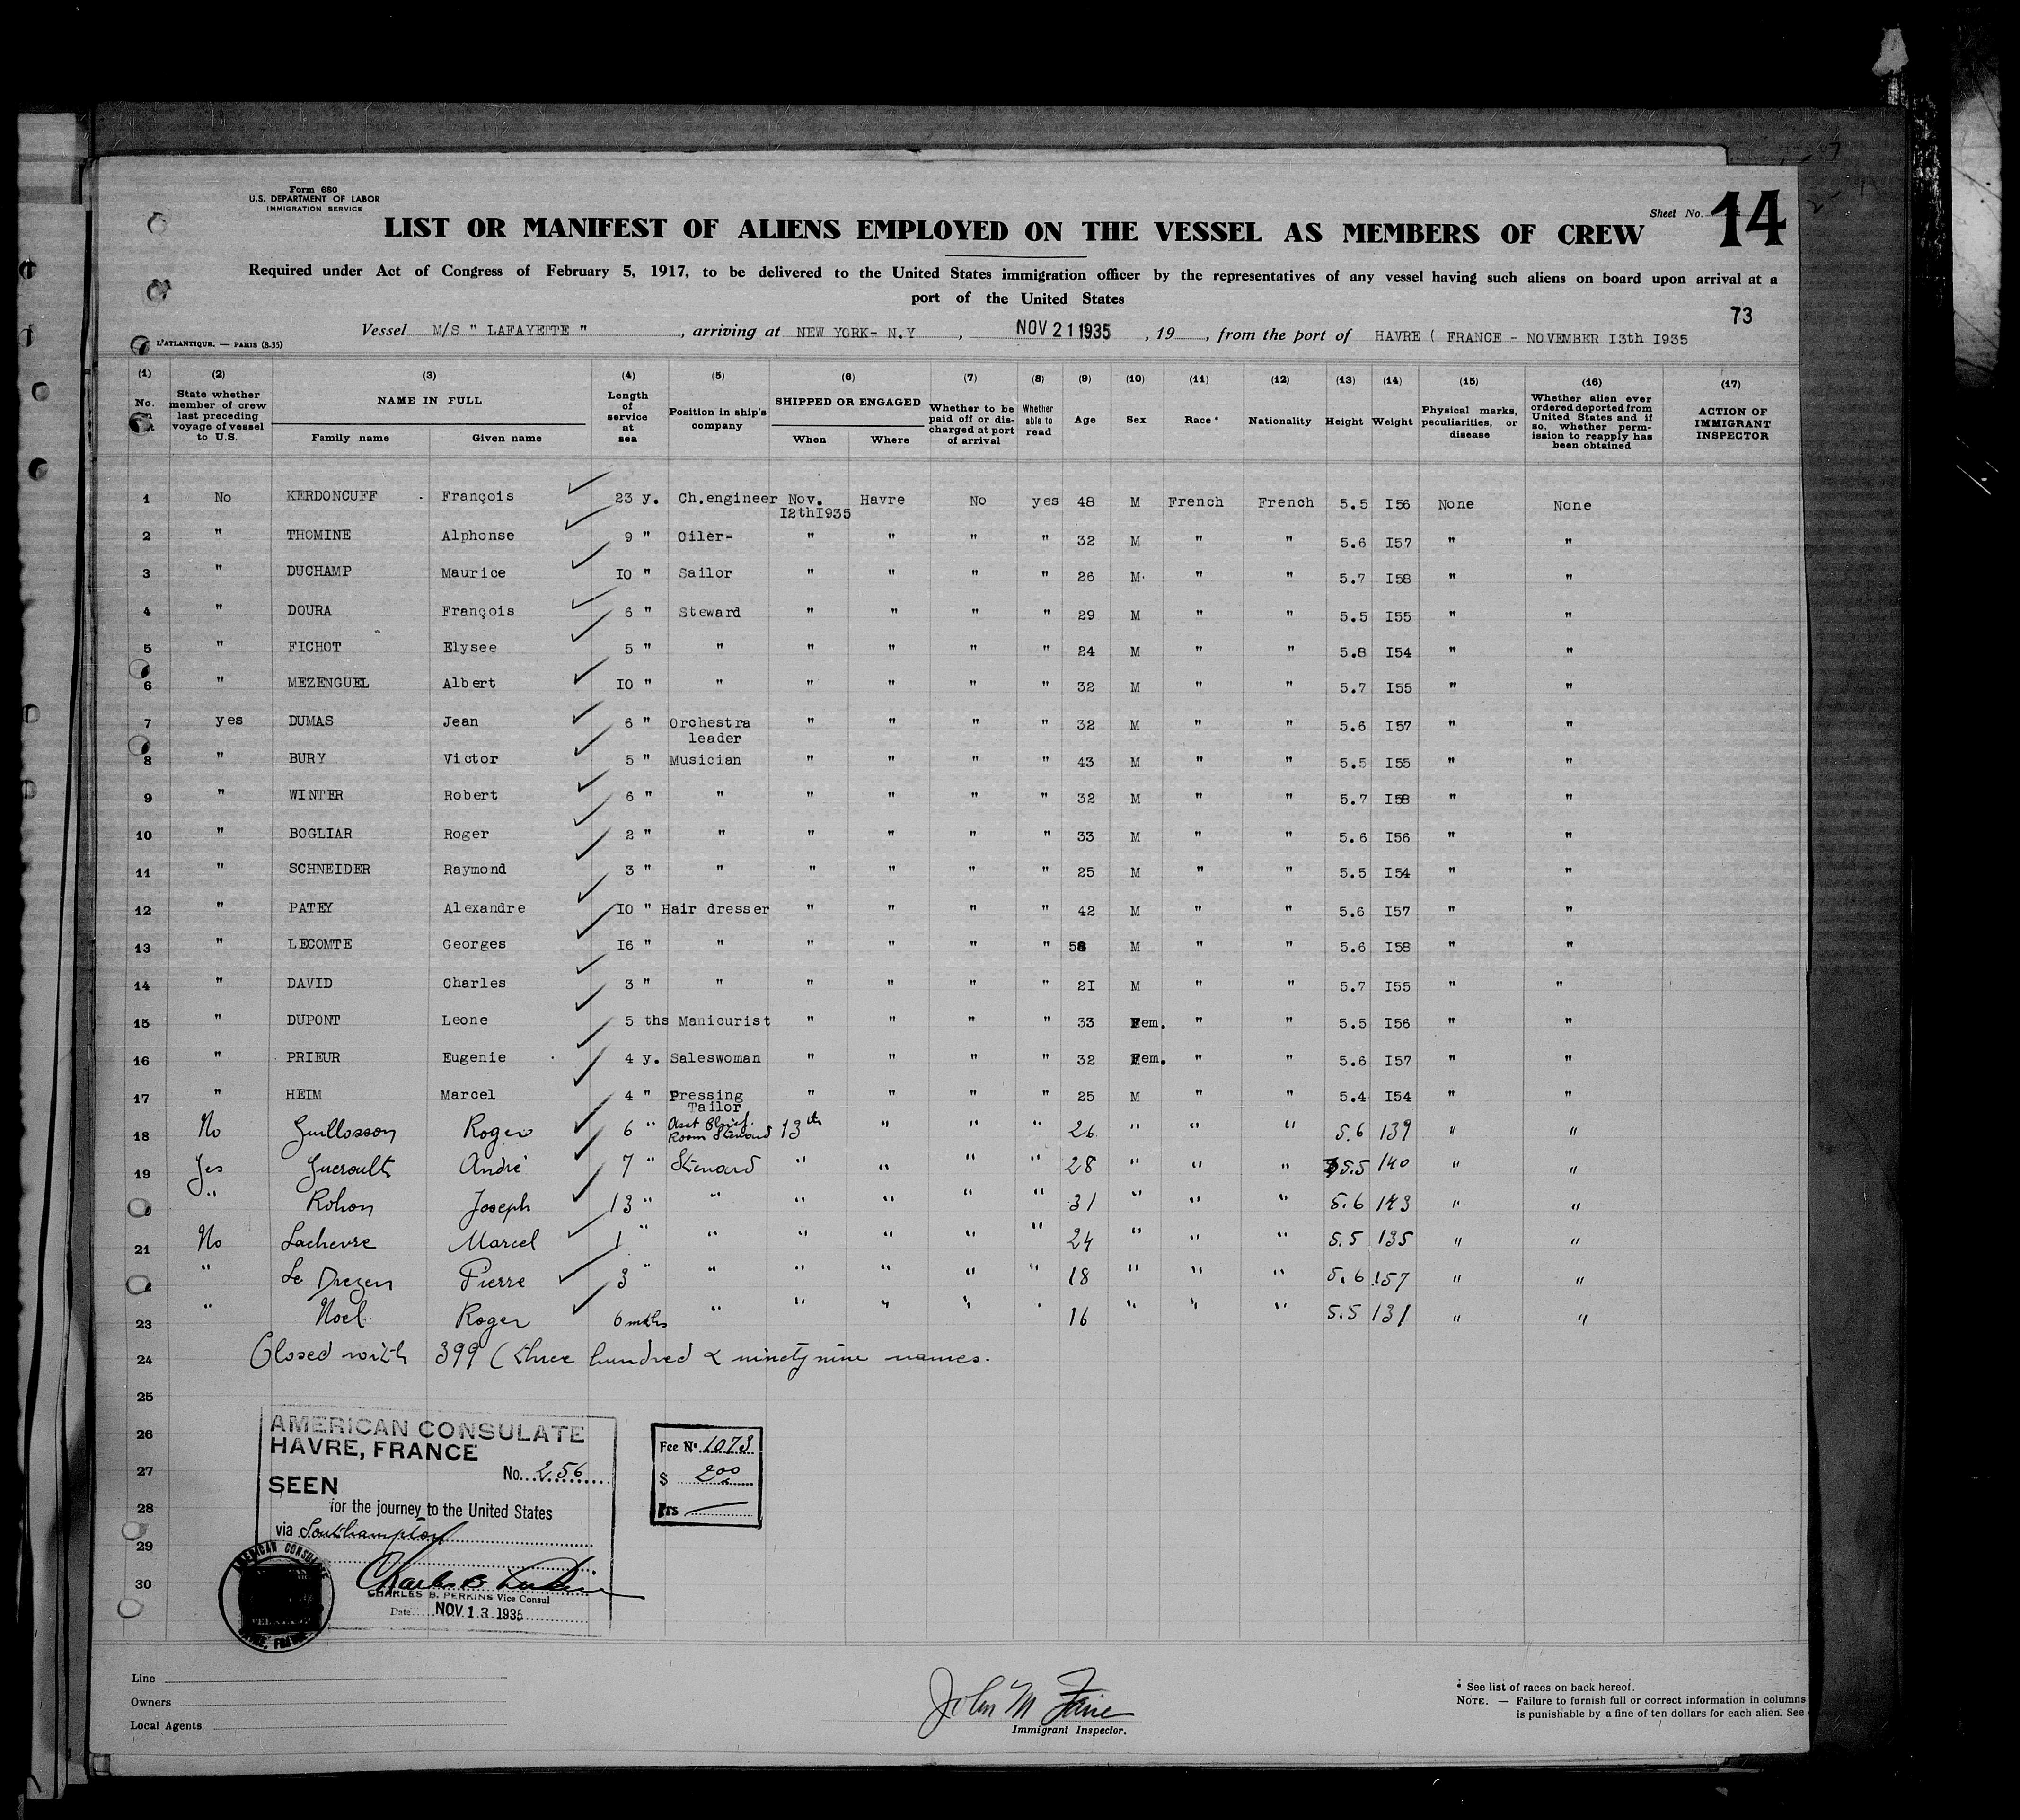 Form 680
U.S. DEPARTMENT OF LABOR
IMMIGRATION SERVICE
Sheet No. 14
LIST OR MANIFEST OF ALIENS EMPLOYED ON THE VESSEL AS MEMBERS OF CREW
Required under Act of Congress of February 5, 1917, to be delivered to the United States immigration officer by the representatives of any vessel having such aliens on board upon arrival at a
port of the United States
73
Vessel M/S " LAFAYETTE " , arriving at NEW YORK- N.Y , NOV 21 1935 , 19 , from the port of HAVRE ( FRANCE - NOVEMBER I3th I935
L'ATLANTIQUE. — PARIS (8-35)
(1) (2) (3) (4) (5) (6) (7) (8) (9) (10) (11) (12) (13) (14) (15) (16) (17)
No. State whether member of crew last preceding voyage of vessel to U.S. NAME IN FULL Family name Given name Length of service at sea Position in ship's company SHIPPED OR ENGAGED When Where Whether to be paid off or discharged at port of arrival Whether able to read Age Sex Race * Nationality Height Weight Physical marks, peculiarities, or disease Whether alien ever ordered deported from United States and if so, whether permission to reapply has been obtained ACTION OF IMMIGRANT INSPECTOR
1 No KERDONCUFF François 23 y. Ch.engineer Nov. I2thI935 Havre No yes 48 M French French 5.5 I56 None None
2 " THOMINE Alphonse 9 " Oiler- " " " " 32 M " " 5.6 I57 " "
3 " DUCHAMP Maurice IO " Sailor " " " " 26 M " " 5.7 I58 " "
4 " DOURA François 6 " Steward " " " " 29 M " " 5.5 I55 " "
5 " FICHOT Elysee 5 " " " " " " 24 M " " 5.8 I54 " "
6 " MEZENGUEL Albert IO " " " " " " 32 M " " 5.7 I55 " "
7 yes DUMAS Jean 6 " Orchestra leader " " " " 32 M " " 5.6 I57 " "
8 " BURY Victor 5 " Musician " " " " 43 M " " 5.5 I55 " "
9 " WINTER Robert 6 " " " " " " 32 M " " 5.7 I58 " "
10 " BOGLIAR Roger 2 " " " " " " 33 M " " 5.6 I56 " "
11 " SCHNEIDER Raymond 3 " " " " " " 25 M " " 5.5 I54 " "
12 " PATEY Alexandre IO " Hair dresser " " " " 42 M " " 5.6 I57 " "
13 " LECOMTE Georges I6 " " " " " " M " " 5.6 I58 " "
14 " DAVID Charles 3 " " " " " " 2I M " " 5.7 I55 " "
15 " DUPONT Leone 5 ths Manicurist " " " " 33 Fem. " " 5.5 I56 " "
16 " PRIEUR Eugenie 4 y. Saleswoman " " " " 32 Fem. " " 5.6 I57 " "
17 " HEIM Marcel 4 " Pressing Tailor " " " " 25 M " " 5.4 I54 " "
18 No Guillosson Roger 6 " Asst Chief. Room Steward 13th " " " 26 " " " 5.6 139 " "
19 Yes Gueroult André 7 " Steward " " " " 28 " " " 5.5 140 " "
" Rohon Joseph 13 " " " " " " 31 " " " 5.6 143 " "
21 No Lachevre Marcel 1 " " " " " " 24 " " " 5.5 135 " "
" Le Drezen Pierre 3 " " " " " " 18 " " " 5.6 157 " "
23 " Noel Roger 6 mths " " " " " 16 " " " 5.5 131 " "
24 Closed with 399 ( three hundred & ninety nine names.
25
26
27
28
29
30
AMERICAN CONSULATE
HAVRE, FRANCE
No. 256
SEEN
for the journey to the United States
via Southampton
CHARLES B. PERKINS Vice Consul
Date NOV 13 1935
Fee No. 1073
$ 2.00
Frs
Line
Owners
Local Agents
Immigrant Inspector.
* See list of races on back hereof.
NOTE. — Failure to furnish full or correct information in columns
is punishable by a fine of ten dollars for each alien. See